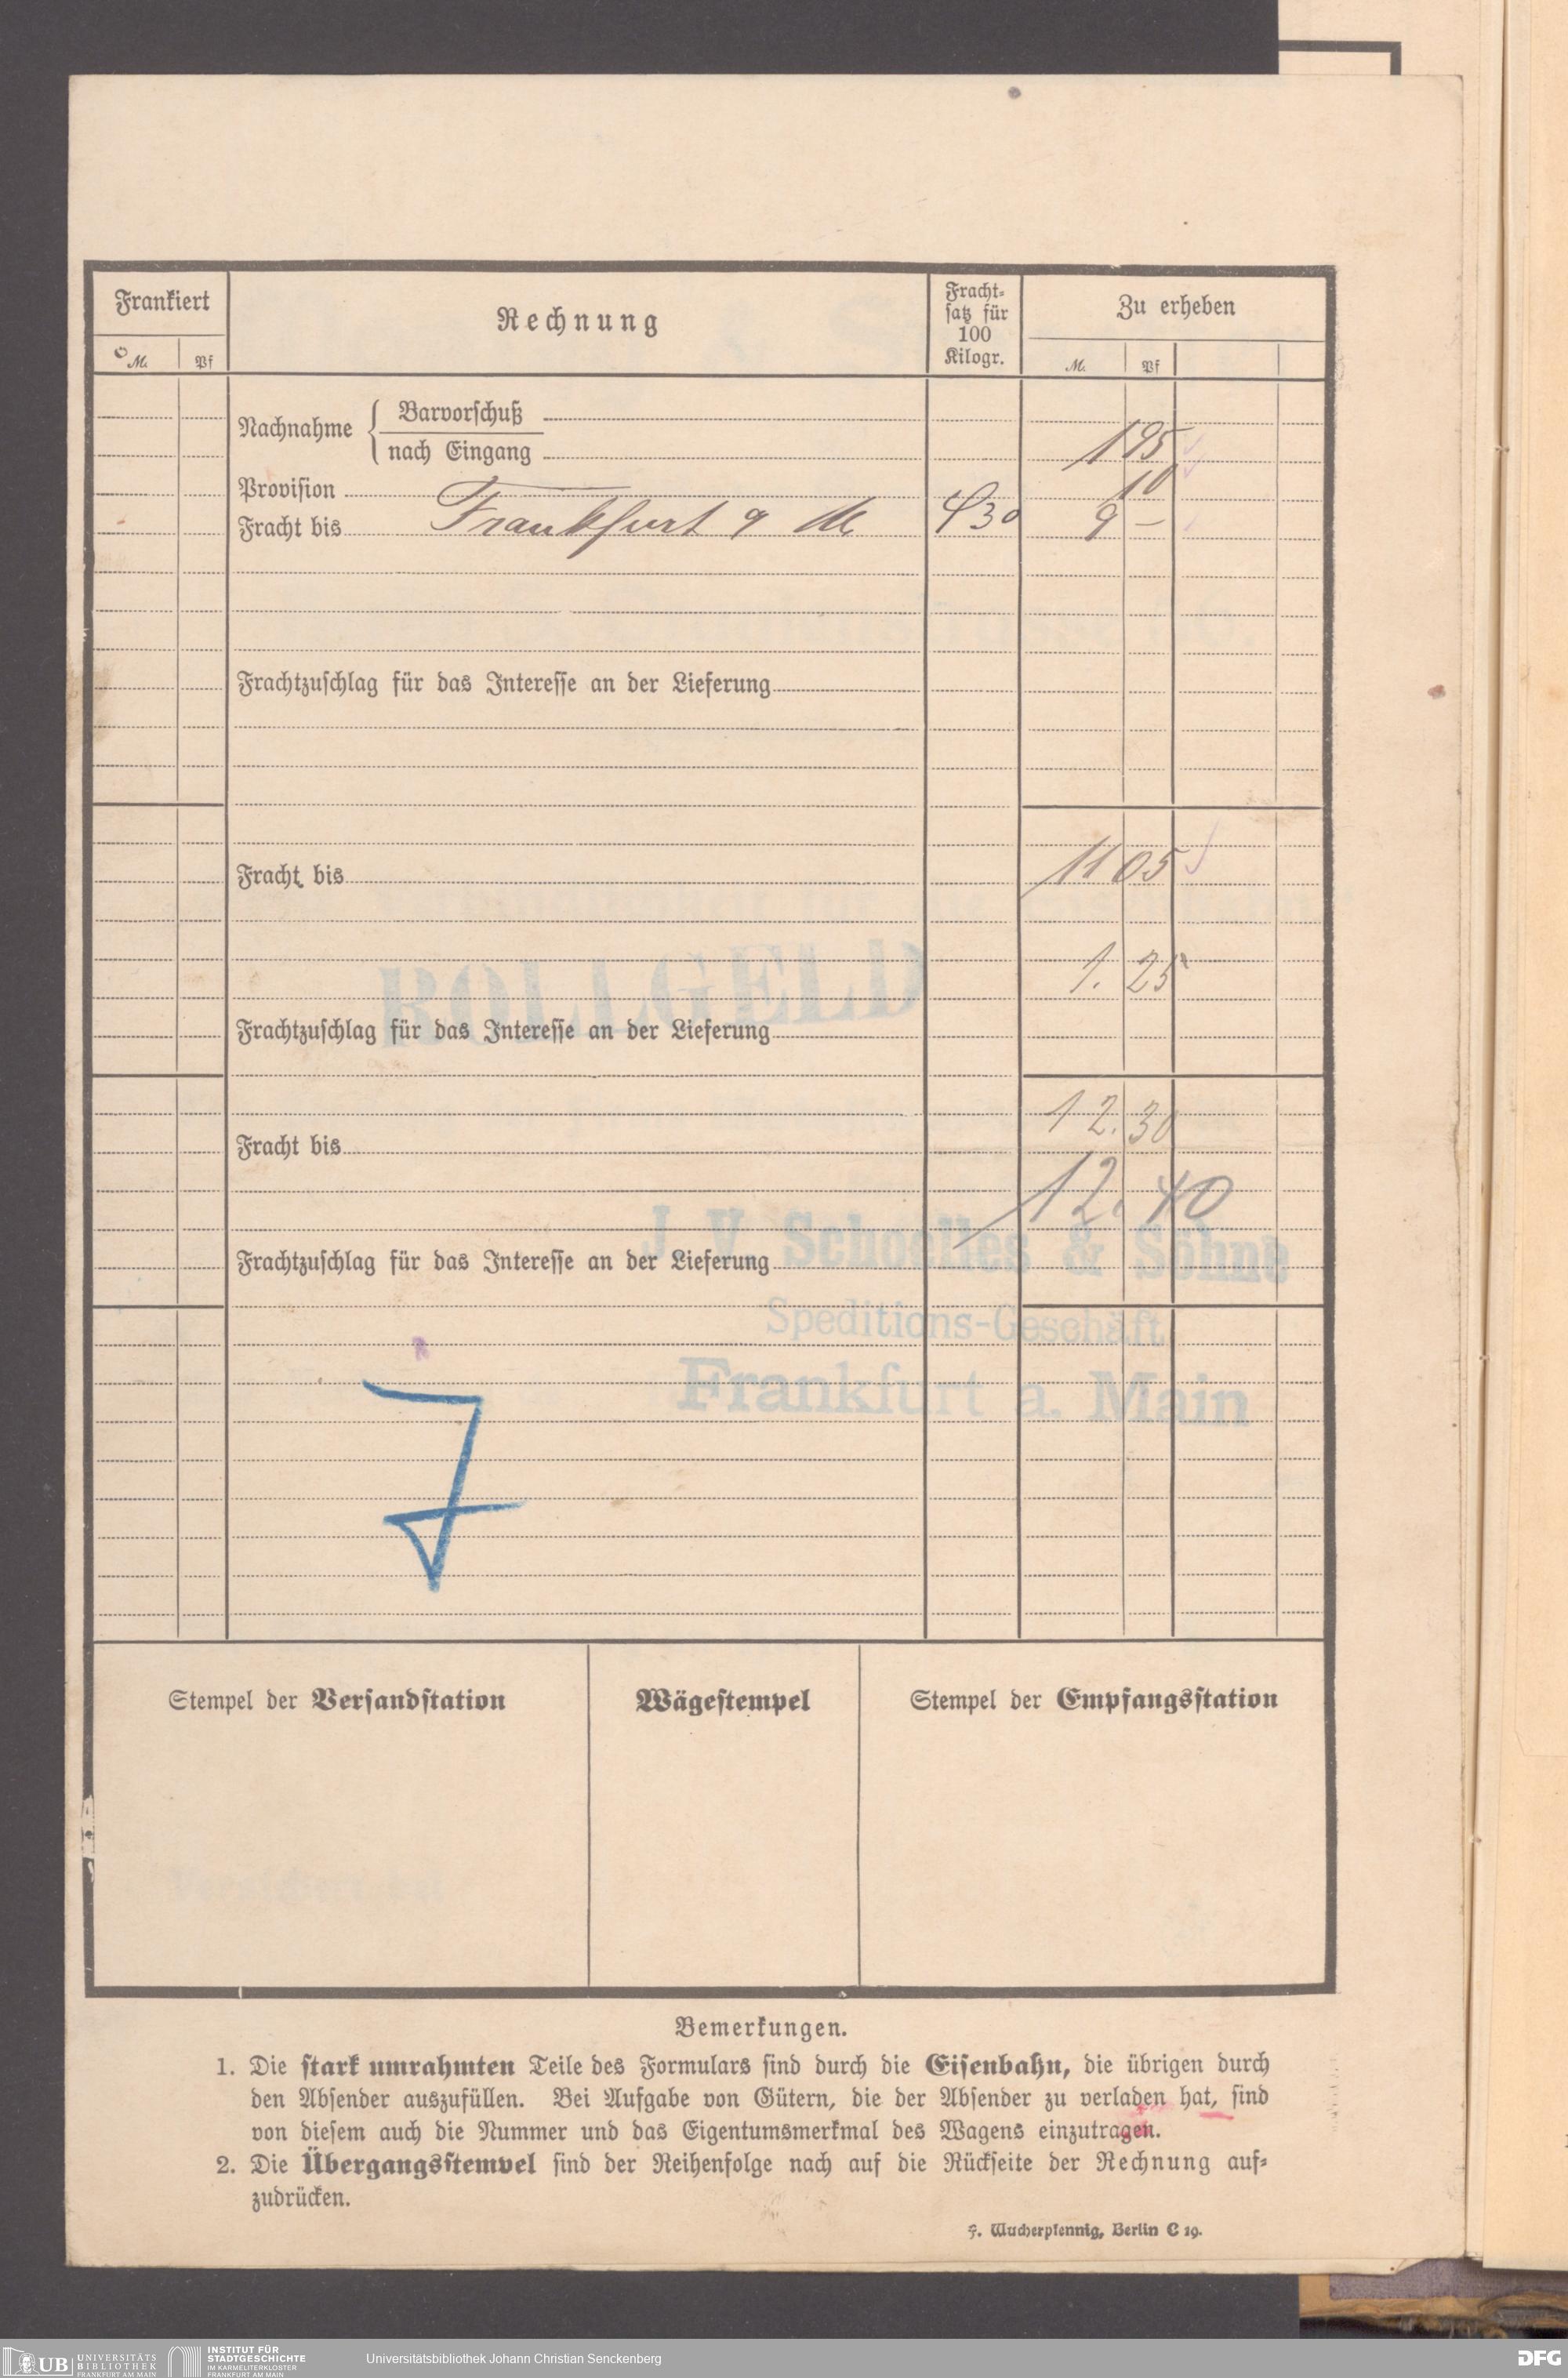 Frankiert
Rechnung
Fracht-
satz für
100
Kilogr.
Zu erheben
M.
Pf
M.
Pf
Nachnahme
Barvorschuß
nach Eingang
1 95
Provision
10
Fracht bis Frankfurt a M 430 9 –
Frachtzuschlag für das Interesse an der Lieferung
Fracht bis
11 05
1. 25
ROLLGELD
Frachtzuschlag für das Interesse an der Lieferung
12. 30
Fracht bis
12. 40
J. V. Schoelles & Söhne
Frachtzuschlag für das Interesse an der Lieferung
Speditions-Geschäft
Frankfurt a. Main
Stempel der Versandstation
Wägestempel
Stempel der Empfangsstation
Bemerkungen.
1. Die stark umrahmten Teile des Formulars sind durch die Eisenbahn, die übrigen durch
den Absender auszufüllen. Bei Aufgabe von Gütern, die der Absender zu verladen hat, sind
von diesem auch die Nummer und das Eigentumsmerkmal des Wagens einzutragen.
2. Die Übergangsstempel sind der Reihenfolge nach auf die Rückseite der Rechnung auf-
zudrücken.
F. Wucherpfennig, Berlin C 19.
UB UNIVERSITÄTS
BIBLIOTHEK
FRANKFURT AM MAIN
INSTITUT FÜR
STADTGESCHICHTE
IM KARMELITERKLOSTER
FRANKFURT AM MAIN
Universitätsbibliothek Johann Christian Senckenberg
DFG